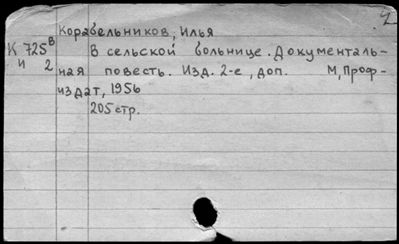 2
Корабельников, Илья
К 725в В сельской больнице. Документаль-
и 2 ная повесть. Изд. 2-е, доп. М, Проф-
издат, 1956
205 стр.